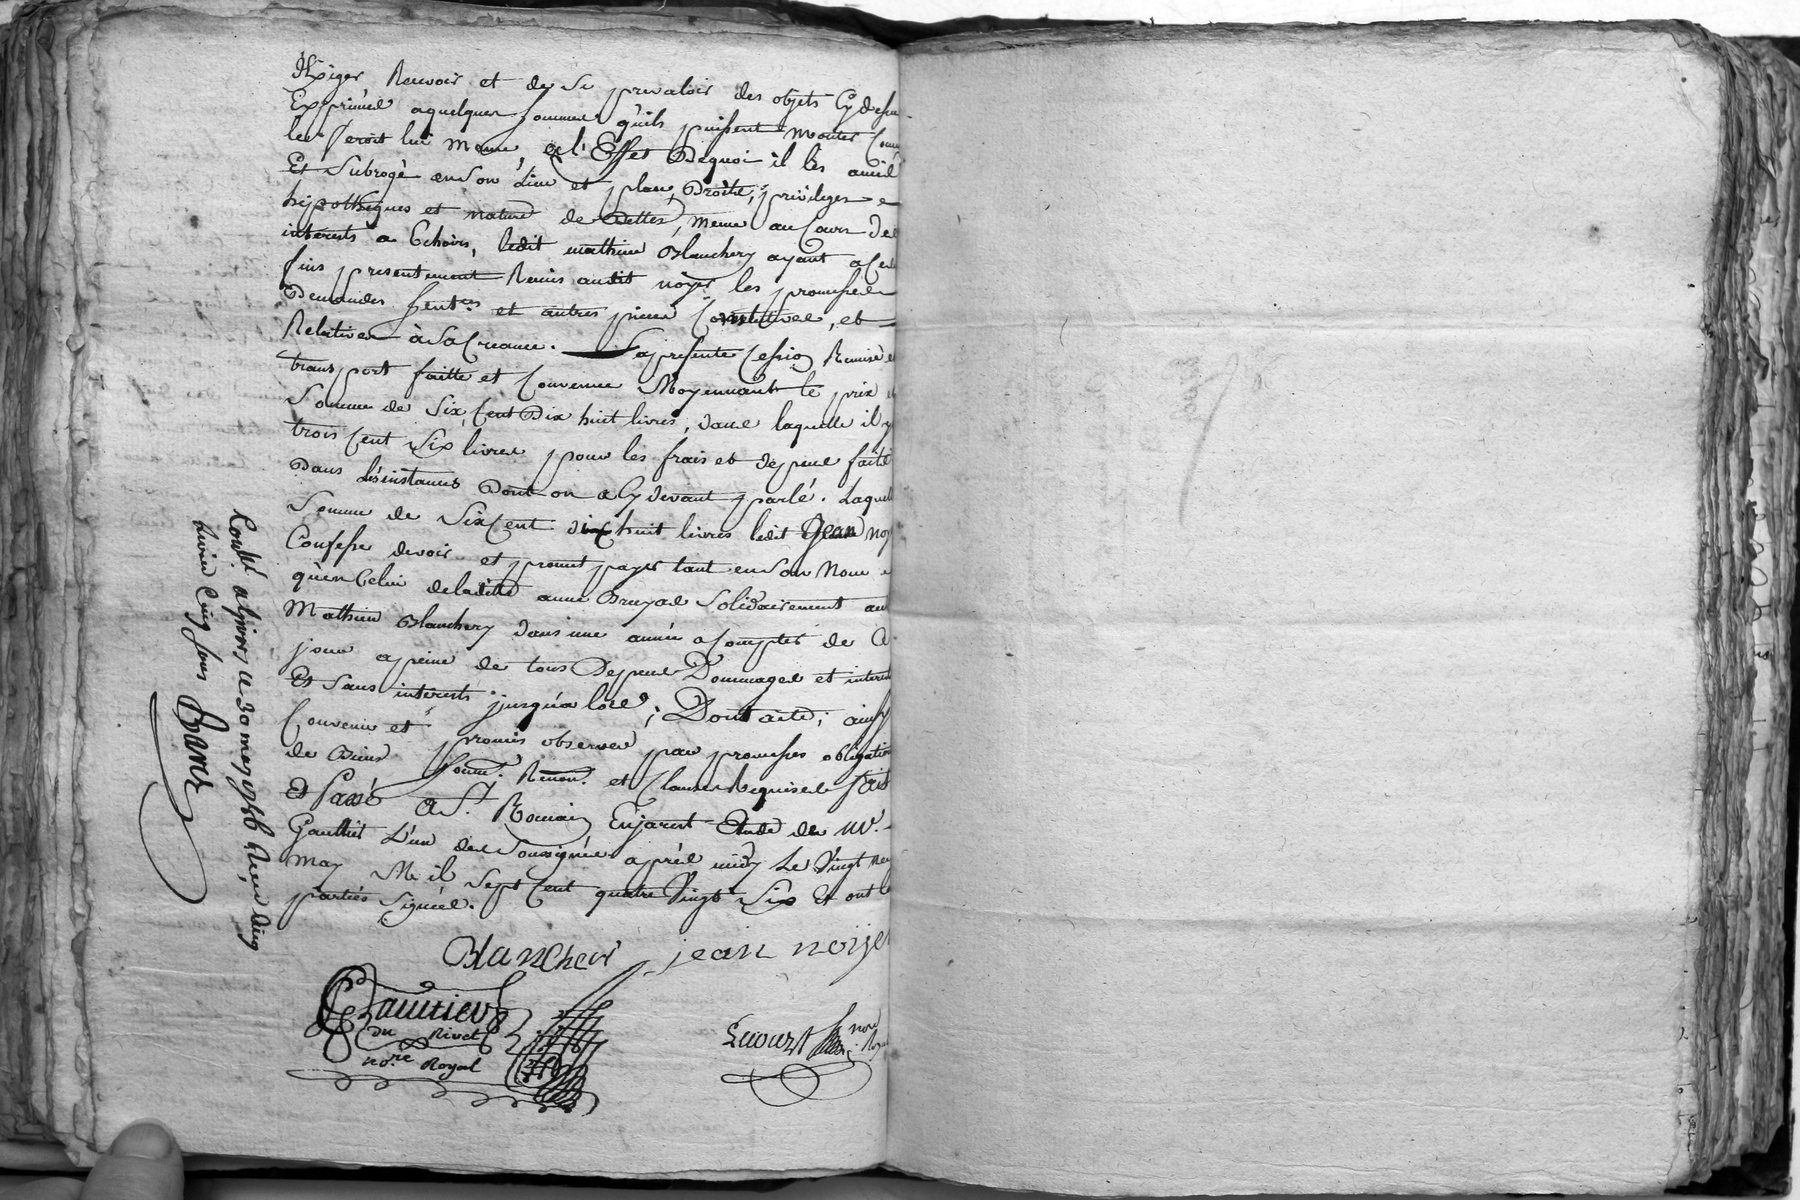 Exiger Recevoir et de se prevaloir des objets Cy dessu
Exprimés a quelques sommes qu'ils puissent monter Com
le feroit lui meme, a l'Effet Dequoi il les a mis
Et Subrogé en son Lieu et place, Droits, privileges e
hipothêques et nature de dettes, meme au Cours des
interests a Echoirs, ledit mathieu Blanchery ayant a ces
fins presentement Remis audit noyer les promesses
Demandes Sent.ces et autres pieces Constitutives, et
Relatives à sa Creance. La presente Cession Remise e
transport faitte et Convenue Moyennant le prix e
Somme de Six Cent Dix huit livres, dans laquelle il y
trois Cent Six livres pour les frais et depens faits
Dans les instances Dont on a Cy devant parlé. Laquel
Somme de Six Cent dix huit livres ledit Jean noy
Confesse devoir et promet payer tant en son Nom e
qu'en Celui de ladite anne Bruyas Solidairement au
Mathieu Blanchery dans une année a Compter de Ce
jour a peine de tous Depens Dommages et interest
Et Sans interests jusqu'a lors; Dont acte; ainsy
Convenu et promis observer par promesses obligation
de Biens Soum.s Renon.s et Clauses Requises fait
Et Passé a St. Romain En jarest Etude de M.e
Gauttier L'un des Soussignés après midy Le Vingt neu
may Mil Sept Cent quatre Vingt Six Et ont les
parties Signées.
Blancheri jean noyer
Gauttier
du Rivet
no.re Royal
Lecourt
nore
Roya
Con.lé a givors ce 30 may 1786 Reçu Cinq
livres Cinq sous